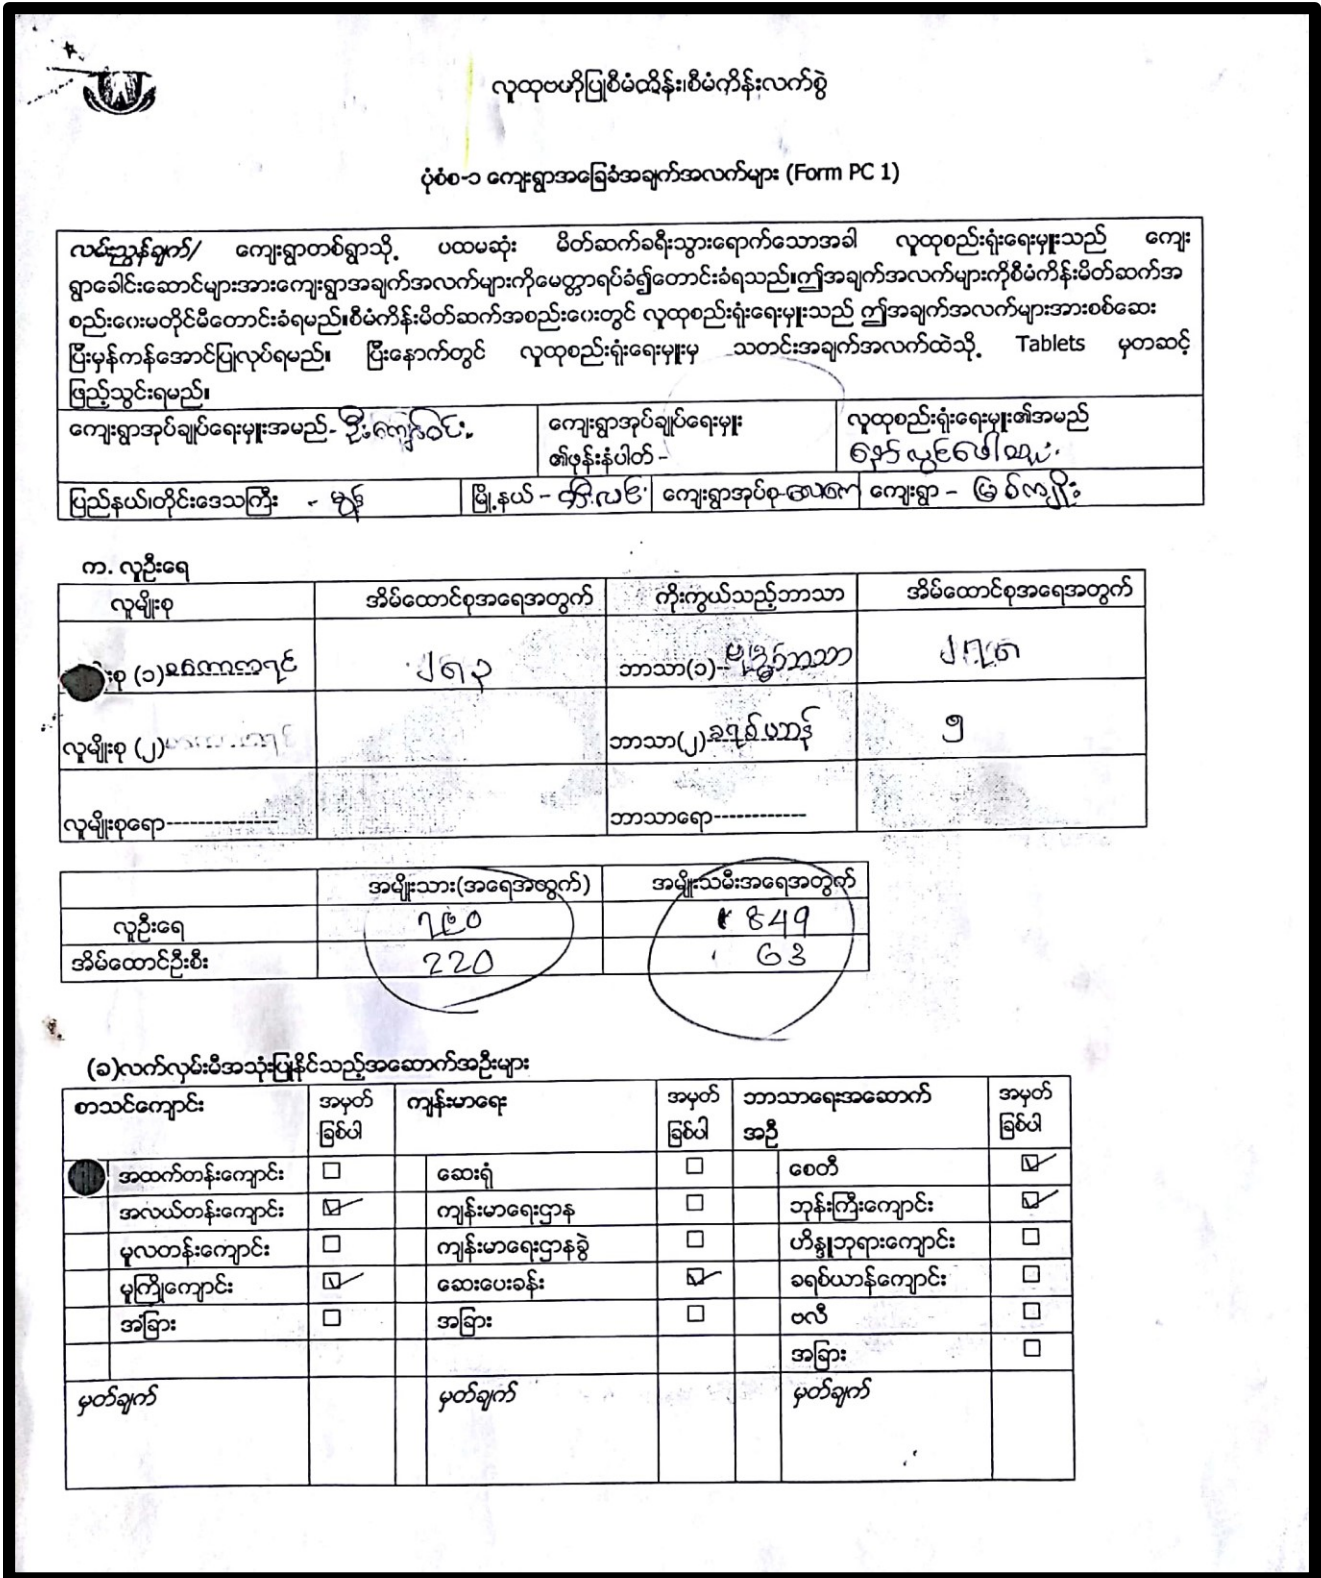 လူထုဗဟိုပြုစီမံထိန်း၊စီမံကိန်းလက်စွဲ
ပုံစံစ-၁ ကျေးရွာအခြေခံအချက်အလက်များ (Form PC 1)
လမ်းညွှန်ချက်/ ကျေးရွာတစ်ရွာသို့ ပထမဆုံး မိတ်ဆက်ခရီးသွားရောက်သောအခါ လူထုစည်းရုံးရေးမှူးသည် ကျေး
ရွာခေါင်းဆောင်များအားကျေးရွာအချက်အလက်များကိုမေတ္တာရပ်ခံ၍တောင်းခံရသည်။ဤအချက်အလက်များကိုစီမံကိန်းမိတ်ဆက်အ
စည်းဝေးမတိုင်မီတောင်းခံရမည်။စီမံကိန်းမိတ်ဆက်အစည်းဝေးတွင် လူထုစည်းရုံးရေးမှူးသည် ဤအချက်အလက်များအားစစ်ဆေး
ပြီးမှန်ကန်အောင်ပြုလုပ်ရမည်။ ပြီးနောက်တွင် လူထုစည်းရုံးရေးမှူးမှ သတင်းအချက်အလက်ထဲသို့ Tablets မှတဆင့်
ဖြည့်သွင်းရမည်။
ကျေးရွာအုပ်ချုပ်ရေးမှူးအမည်- ဦးကျော်ဝင်း ကျေးရွာအုပ်ချုပ်ရေးမှူး လူထုစည်းရုံးရေးမှူး၏အမည်
၏ဖုန်းနံပါတ် -
ပြည်နယ်၊တိုင်းဒေသကြီး - မွန် မြို့နယ် - ဘီးလင်း ကျေးရွာအုပ်စု- ကျေးရွာ - မြစ်ကျိုး
က. လူဦးရေ
လူမျိုးစု အိမ်ထောင်စုအရေအတွက် ကိုးကွယ်သည့်ဘာသာ အိမ်ထောင်စုအရေအတွက်
စု (၁) ၂၈၃ ဘာသာ(၁)-- ဗုဒ္ဓဘာသာ ၂၇၈
လူမျိုးစု (၂) ဘာသာ(၂) ခရစ်ယာန် ၅
လူမျိုးစုရော------------- ဘာသာရော------------
အမျိုးသား(အရေအတွက်) အမျိုးသမီးအရေအတွက်
လူဦးရေ ၇၉၀ 849
အိမ်ထောင်ဦးစီး 220 63
(ခ)လက်လှမ်းမီအသုံးပြုနိုင်သည့်အဆောက်အဦးများ
စာသင်ကျောင်း အမှတ် ကျန်းမာရေး အမှတ် ဘာသာရေးအဆောက် အမှတ်
ခြစ်ပါ ခြစ်ပါ အဦ ခြစ်ပါ
အထက်တန်းကျောင်း ☐ ဆေးရုံ ☐ စေတီ ☑
အလယ်တန်းကျောင်း ☑ ကျန်းမာရေးဌာန ☐ ဘုန်းကြီးကျောင်း ☑
မူလတန်းကျောင်း ☐ ကျန်းမာရေးဌာနခွဲ ☐ ဟိန္ဒူဘုရားကျောင်း ☐
မူကြိုကျောင်း ☑ ဆေးပေးခန်း ☑ ခရစ်ယာန်ကျောင်း ☐
အခြား ☐ အခြား ☐ ဗလီ ☐
အခြား ☐
မှတ်ချက် မှတ်ချက် မှတ်ချက်